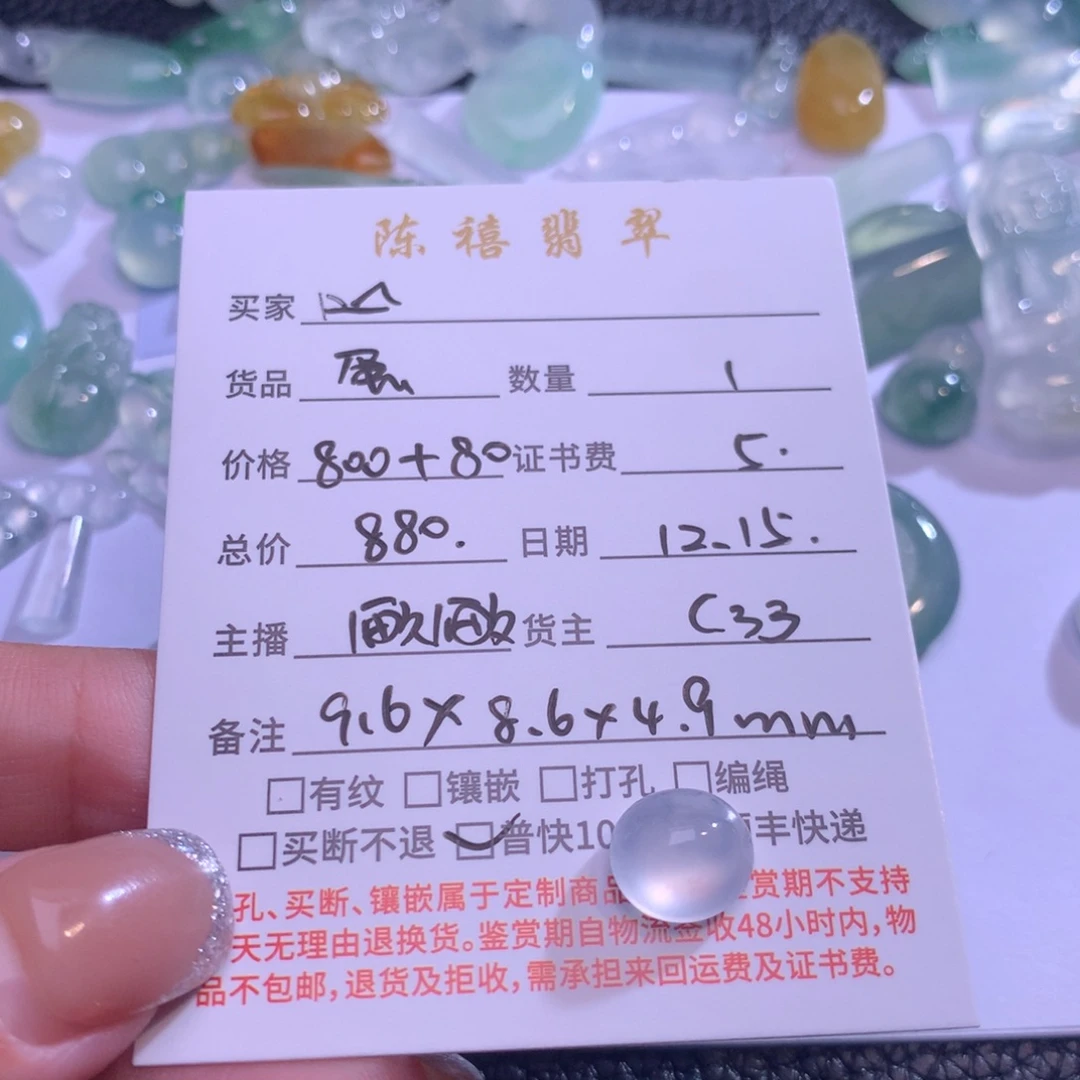 陈禧翡翠
买家
货品 数量 1
价格 800+80 证书费 5.
总价 880. 日期 12.15.
主播 货主 C33
备注 9.6×8.6×4.9mm
□有纹 □镶嵌 □打孔 □编绳
□买断不退 □普快10 丰快递
孔、买断、镶嵌属于定制商品 赏期不支持
天无理由退换货。鉴赏期自物流签收48小时内，物
品不包邮，退货及拒收，需承担来回运费及证书费。